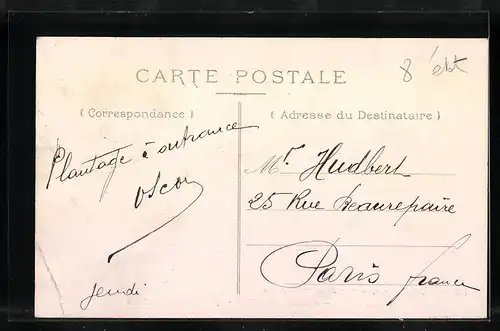 8 
CARTE POSTALE
( Correspondance )
( Adresse du Destinataire )
Plantage à outrance
Oscar
jeudi
Mr. Hudbert
25 Rue Beaurepaire
Paris France